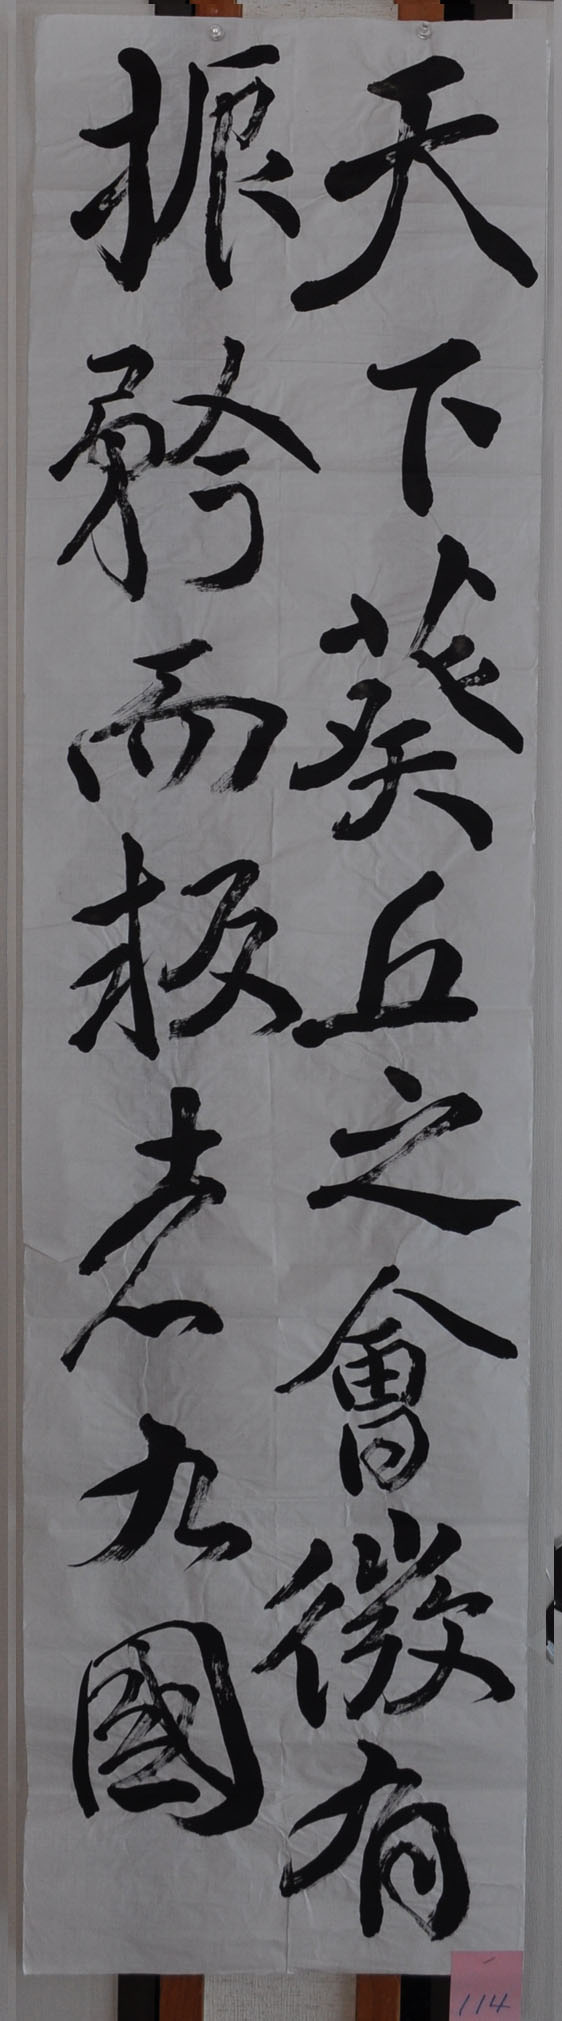 天下葵丘之會微有
振矜而叛者九國
114